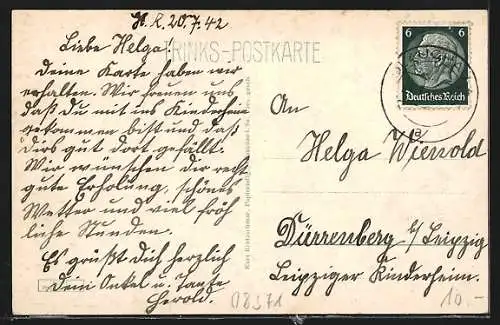 H. R. 20.7.42
Liebe Helga!
RINKS-POSTKARTE
Deine Karte haben wir
erhalten. Wir freuen uns
daß Du mit ins Kinderheim
gekommen bist und daß
Dirs gut dort gefällt.
Wir wünschen dir recht
gute Erholung, schönes
Wetter und viel fröh
liche Stunden.
Es grüßt Dich herzlich
Dein Onkel u. Tante
Herold.
6 6
Deutsches Reich
An
Helga Wienold
Dürrenberg b/ Leipzig
Leipziger Kinderheim.
08371
10.-